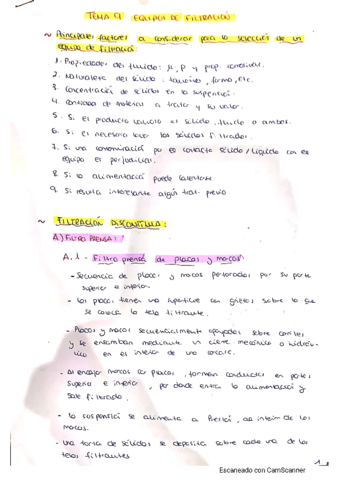 TEMA 9 EQUIPOS DE FILTRACIÓN
~ Principales factores a considerar para la selección de un
equipo de filtración:
1. Propiedades del fluido: μ, ρ y prop. corrosivas.
2. Naturaleza del sólido: tamaño, forma, etc.
3. Concentración de sólidos en la suspensión.
4. Cantidad de material a tratar y su valor.
5. Si el producto valioso es sólido, fluido o ambos.
6. Si es necesario lavar los sólidos filtrados.
7. Si una contaminación por el contacto sólido/líquido con el
equipo es perjudicial.
8. Si la alimentación puede calentarse
9. Si resulta interesante algún trat. previo
~ FILTRACIÓN DISCONTINUA:
A) FILTRO PRENSA:
A.1 - Filtro prensa de placas y marcos:
- Secuencia de placas y marcos perforados por su parte
superior e inferior.
- Las placas tienen una superficie con grietas sobre la que
se coloca la tela filtrante.
- Placas y marcos secuencialmente apoyados sobre carriles
y se ensamblan mediante un cierre mecánico o hidráu-
lico en el interior de una carcasa.
- Al encajar marcos con placas, forman conductos en partes
superior e inferior, por donde entra la alimentación y
sale filtrado.
- La suspensión se alimenta a presión, al interior de los
marcos.
- Una torta de sólidos se deposita sobre cada una de las
telas filtrantes
1
Escaneado con CamScanner